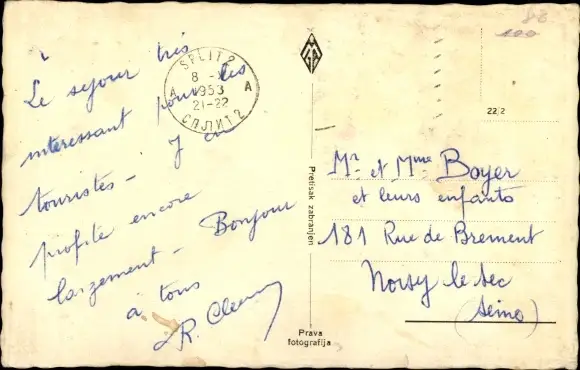 Le sejour très
interessant pour les
touristes - J'en
profite encore
largement - Bonjour
à tous
R.
SPLIT 2
8
A 1953 A
21-22
СПЛИТ 2
82
100
22/2
Pretisak zabranjen
Mr et Mme Boyer
et leurs enfants
181 Rue de Brement
Noisy le Sec
(Seine)
Prava
fotografija